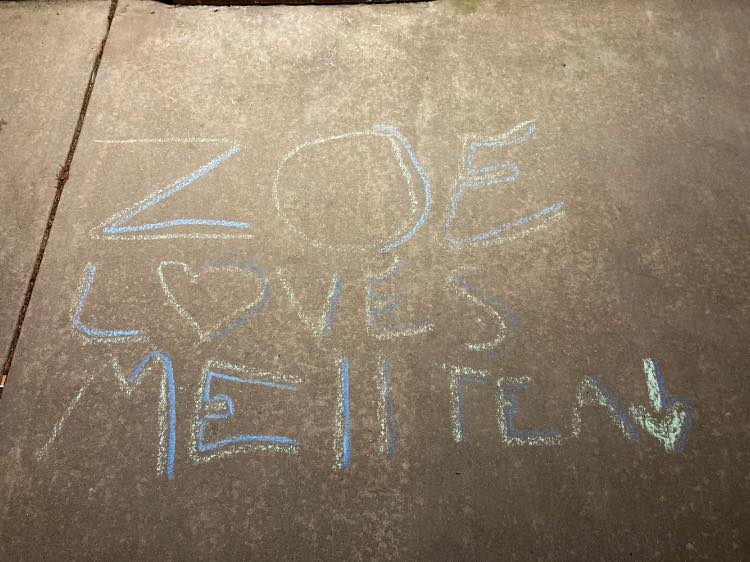 ZOE
L♡VES
MEll TEA↓